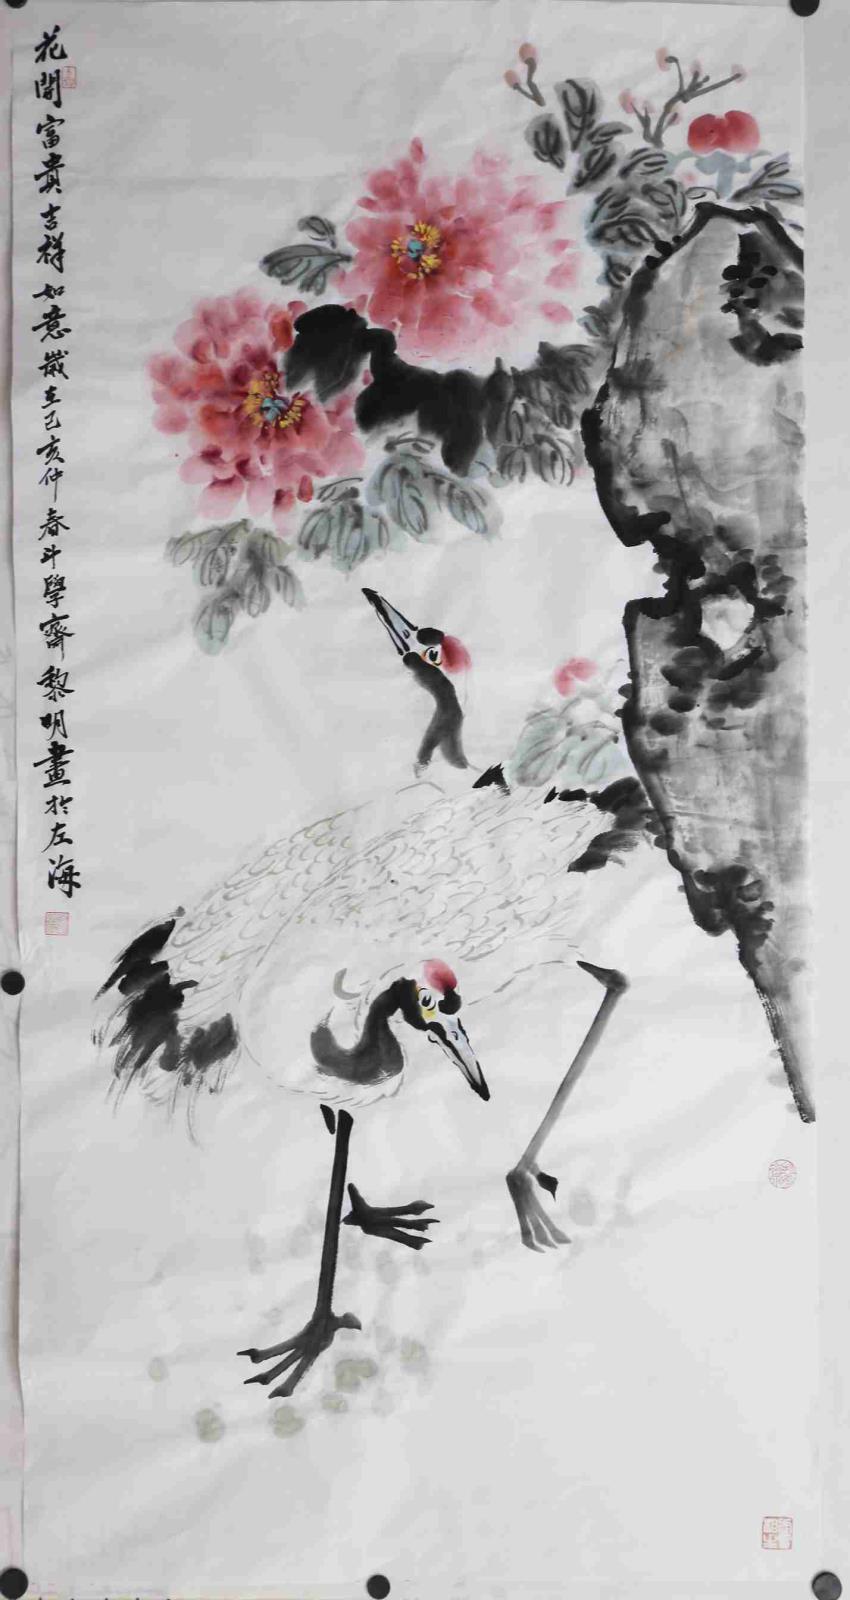 花開富貴吉祥如意歲在己亥仲春斗學齋黎明畫於左海